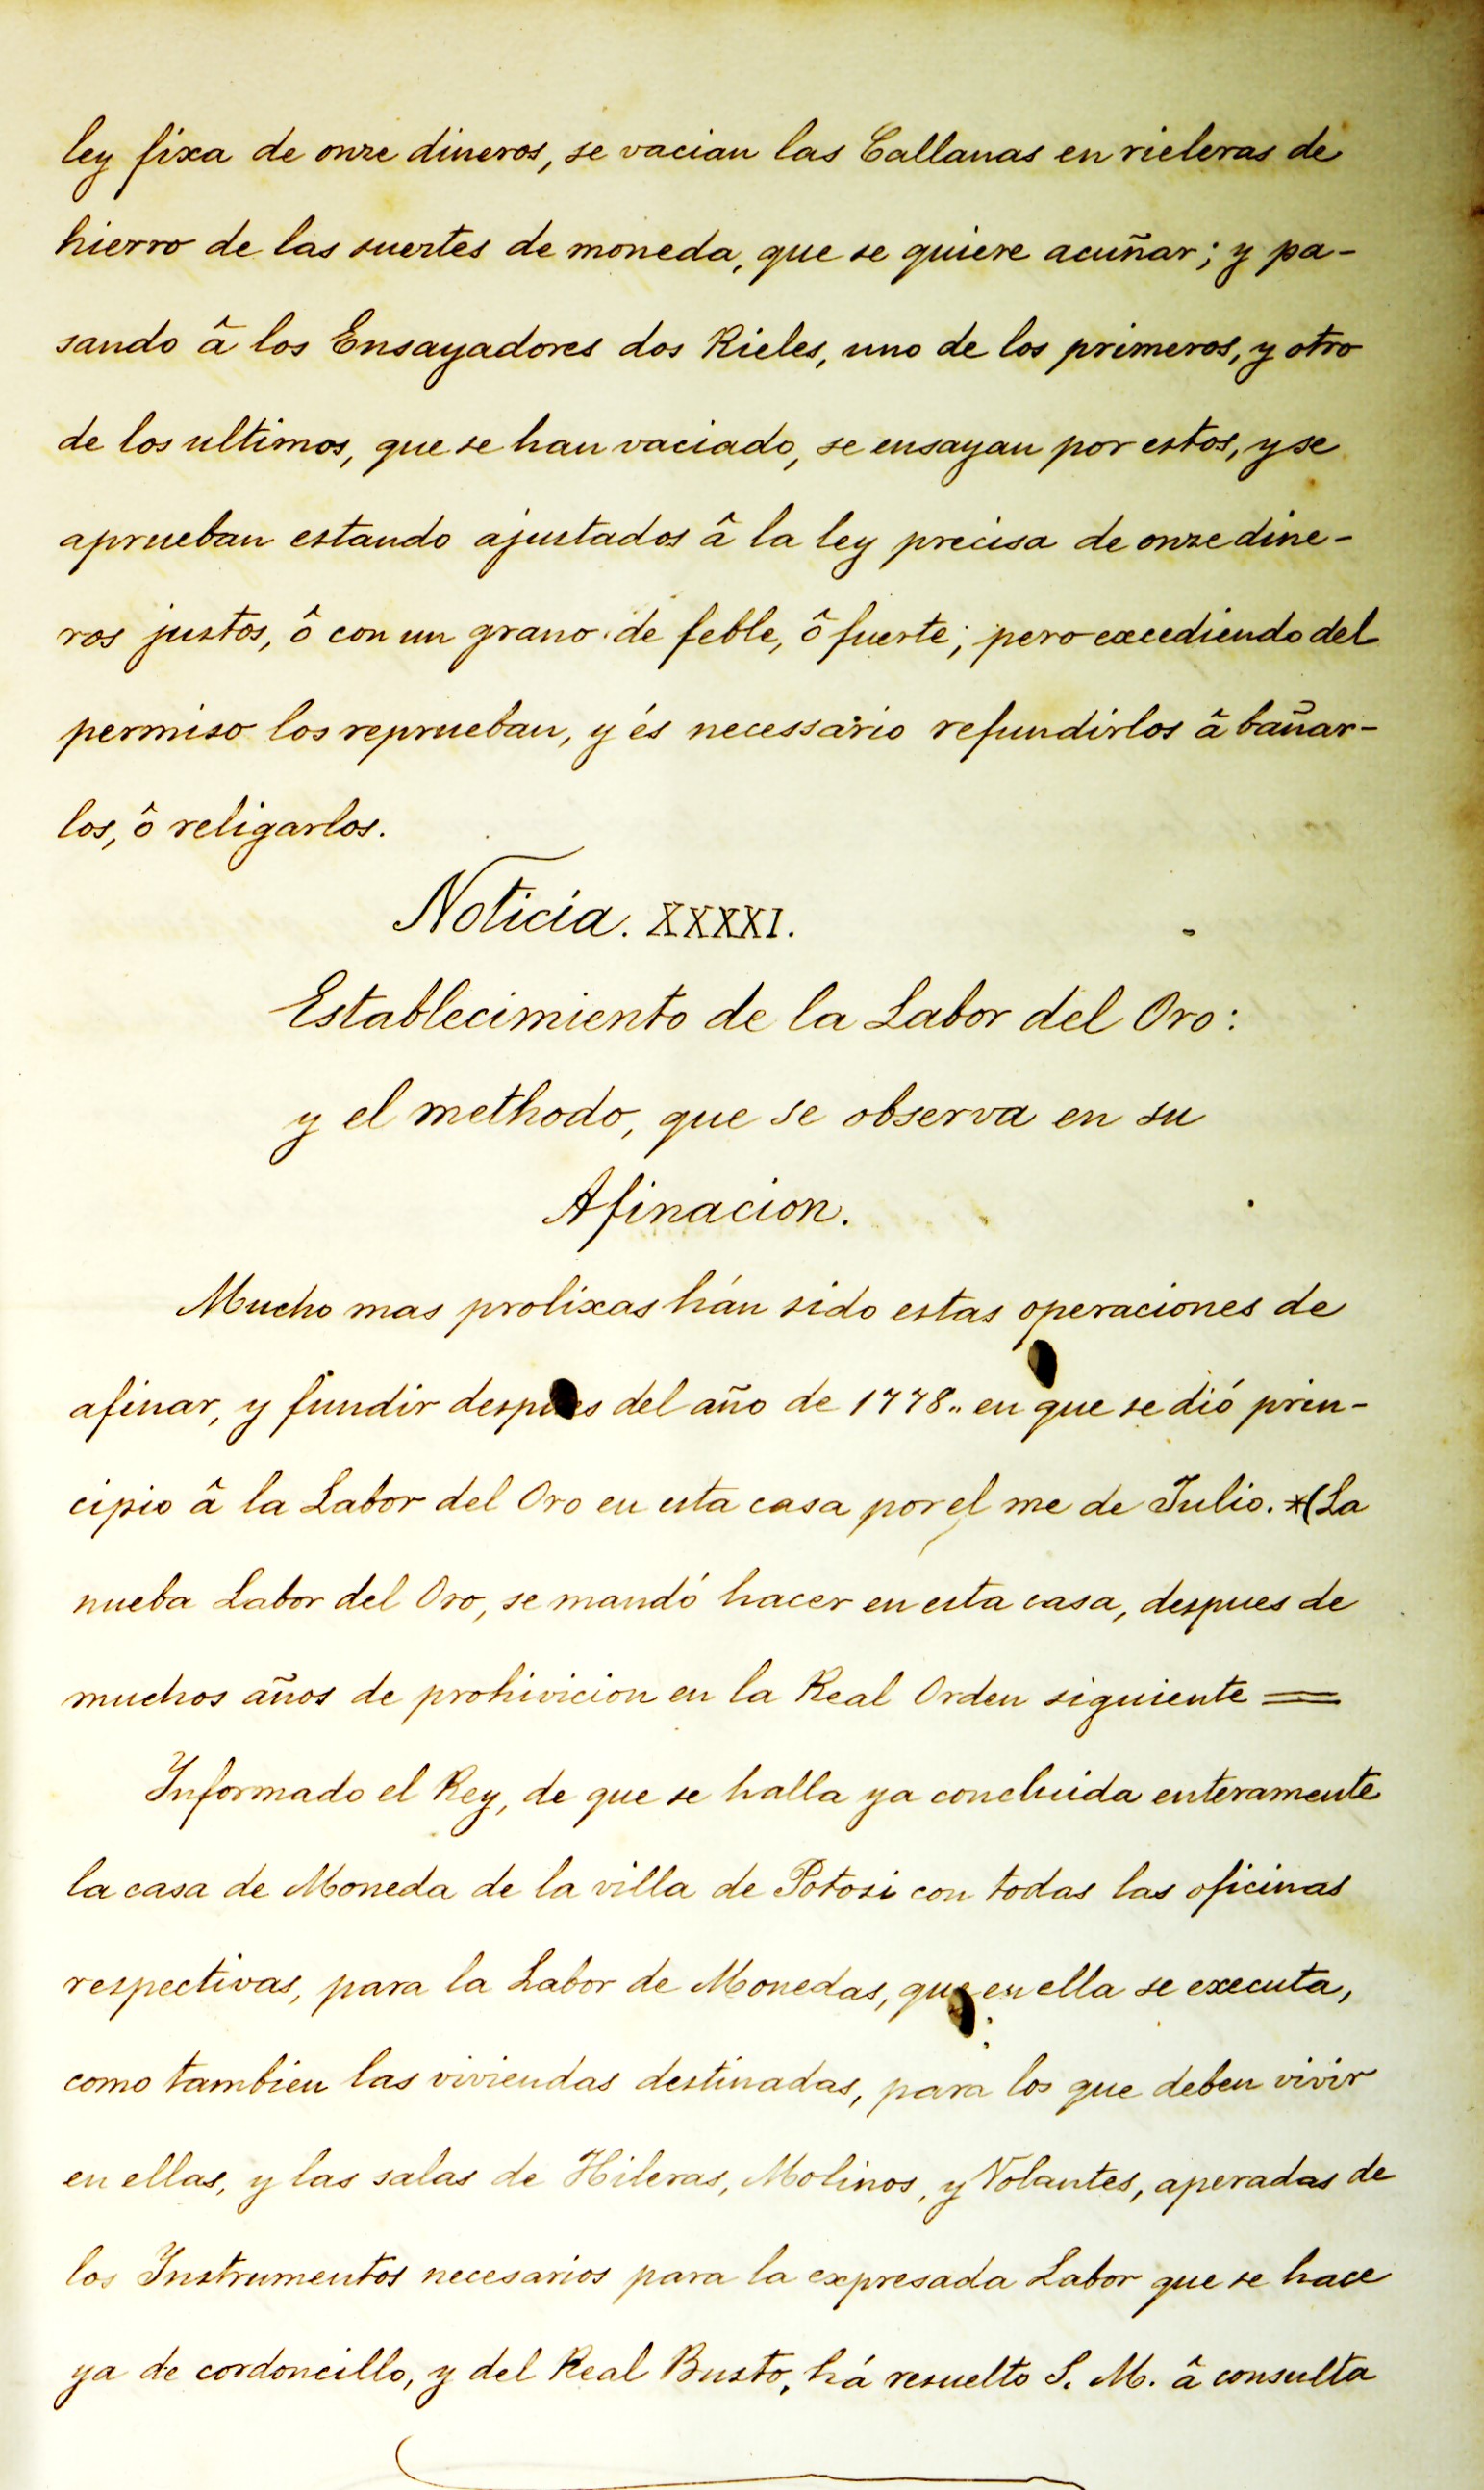 ley fixa de onze dineros, se vacian las Callanas en rieleras de
hierro de las suertes de moneda, que se quiere acuñar; y pa-
sando â los Ensayadores dos Rieles, uno de los primeros, y otro
de los ultimos, que se han vaciado, se ensayan por estos, y se
aprueban estando ajustados â la ley precisa de onze dine-
ros justos, ô con un grano de feble, ô fuerte; pero excediendo del
permiso los reprueban, y és necessario refundirlos â bañar-
los, ô religarlos.
Noticia. XXXXI.
Establecimiento de la Labor del Oro:
y el methodo, que se observa en su
Afinacion.
Mucho mas prolixas hán sido estas operaciones de
afinar, y fundir despues del año de 1778.. en que se dió prin-
cipio â la Labor del Oro en esta casa por el me de Julio. *(La
nueba Labor del Oro, se mandó hacer en esta casa, despues de
muchos años de prohivicion en la Real Orden siguiente =
Informado el Rey, de que se halla ya concluida enteramente
la casa de Moneda de la villa de Potosi con todas las oficinas
respectivas, para la Labor de Monedas, que en ella se executa,
como tambien las viviendas destinadas, para los que deben vivir
en ellas, y las salas de Hileras, Molinos, y Volantes, aperadas de
los Instrumentos necesarios para la expresada Labor que se hace
ya de cordoncillo, y del Real Busto, há resuelto S. M. â consulta